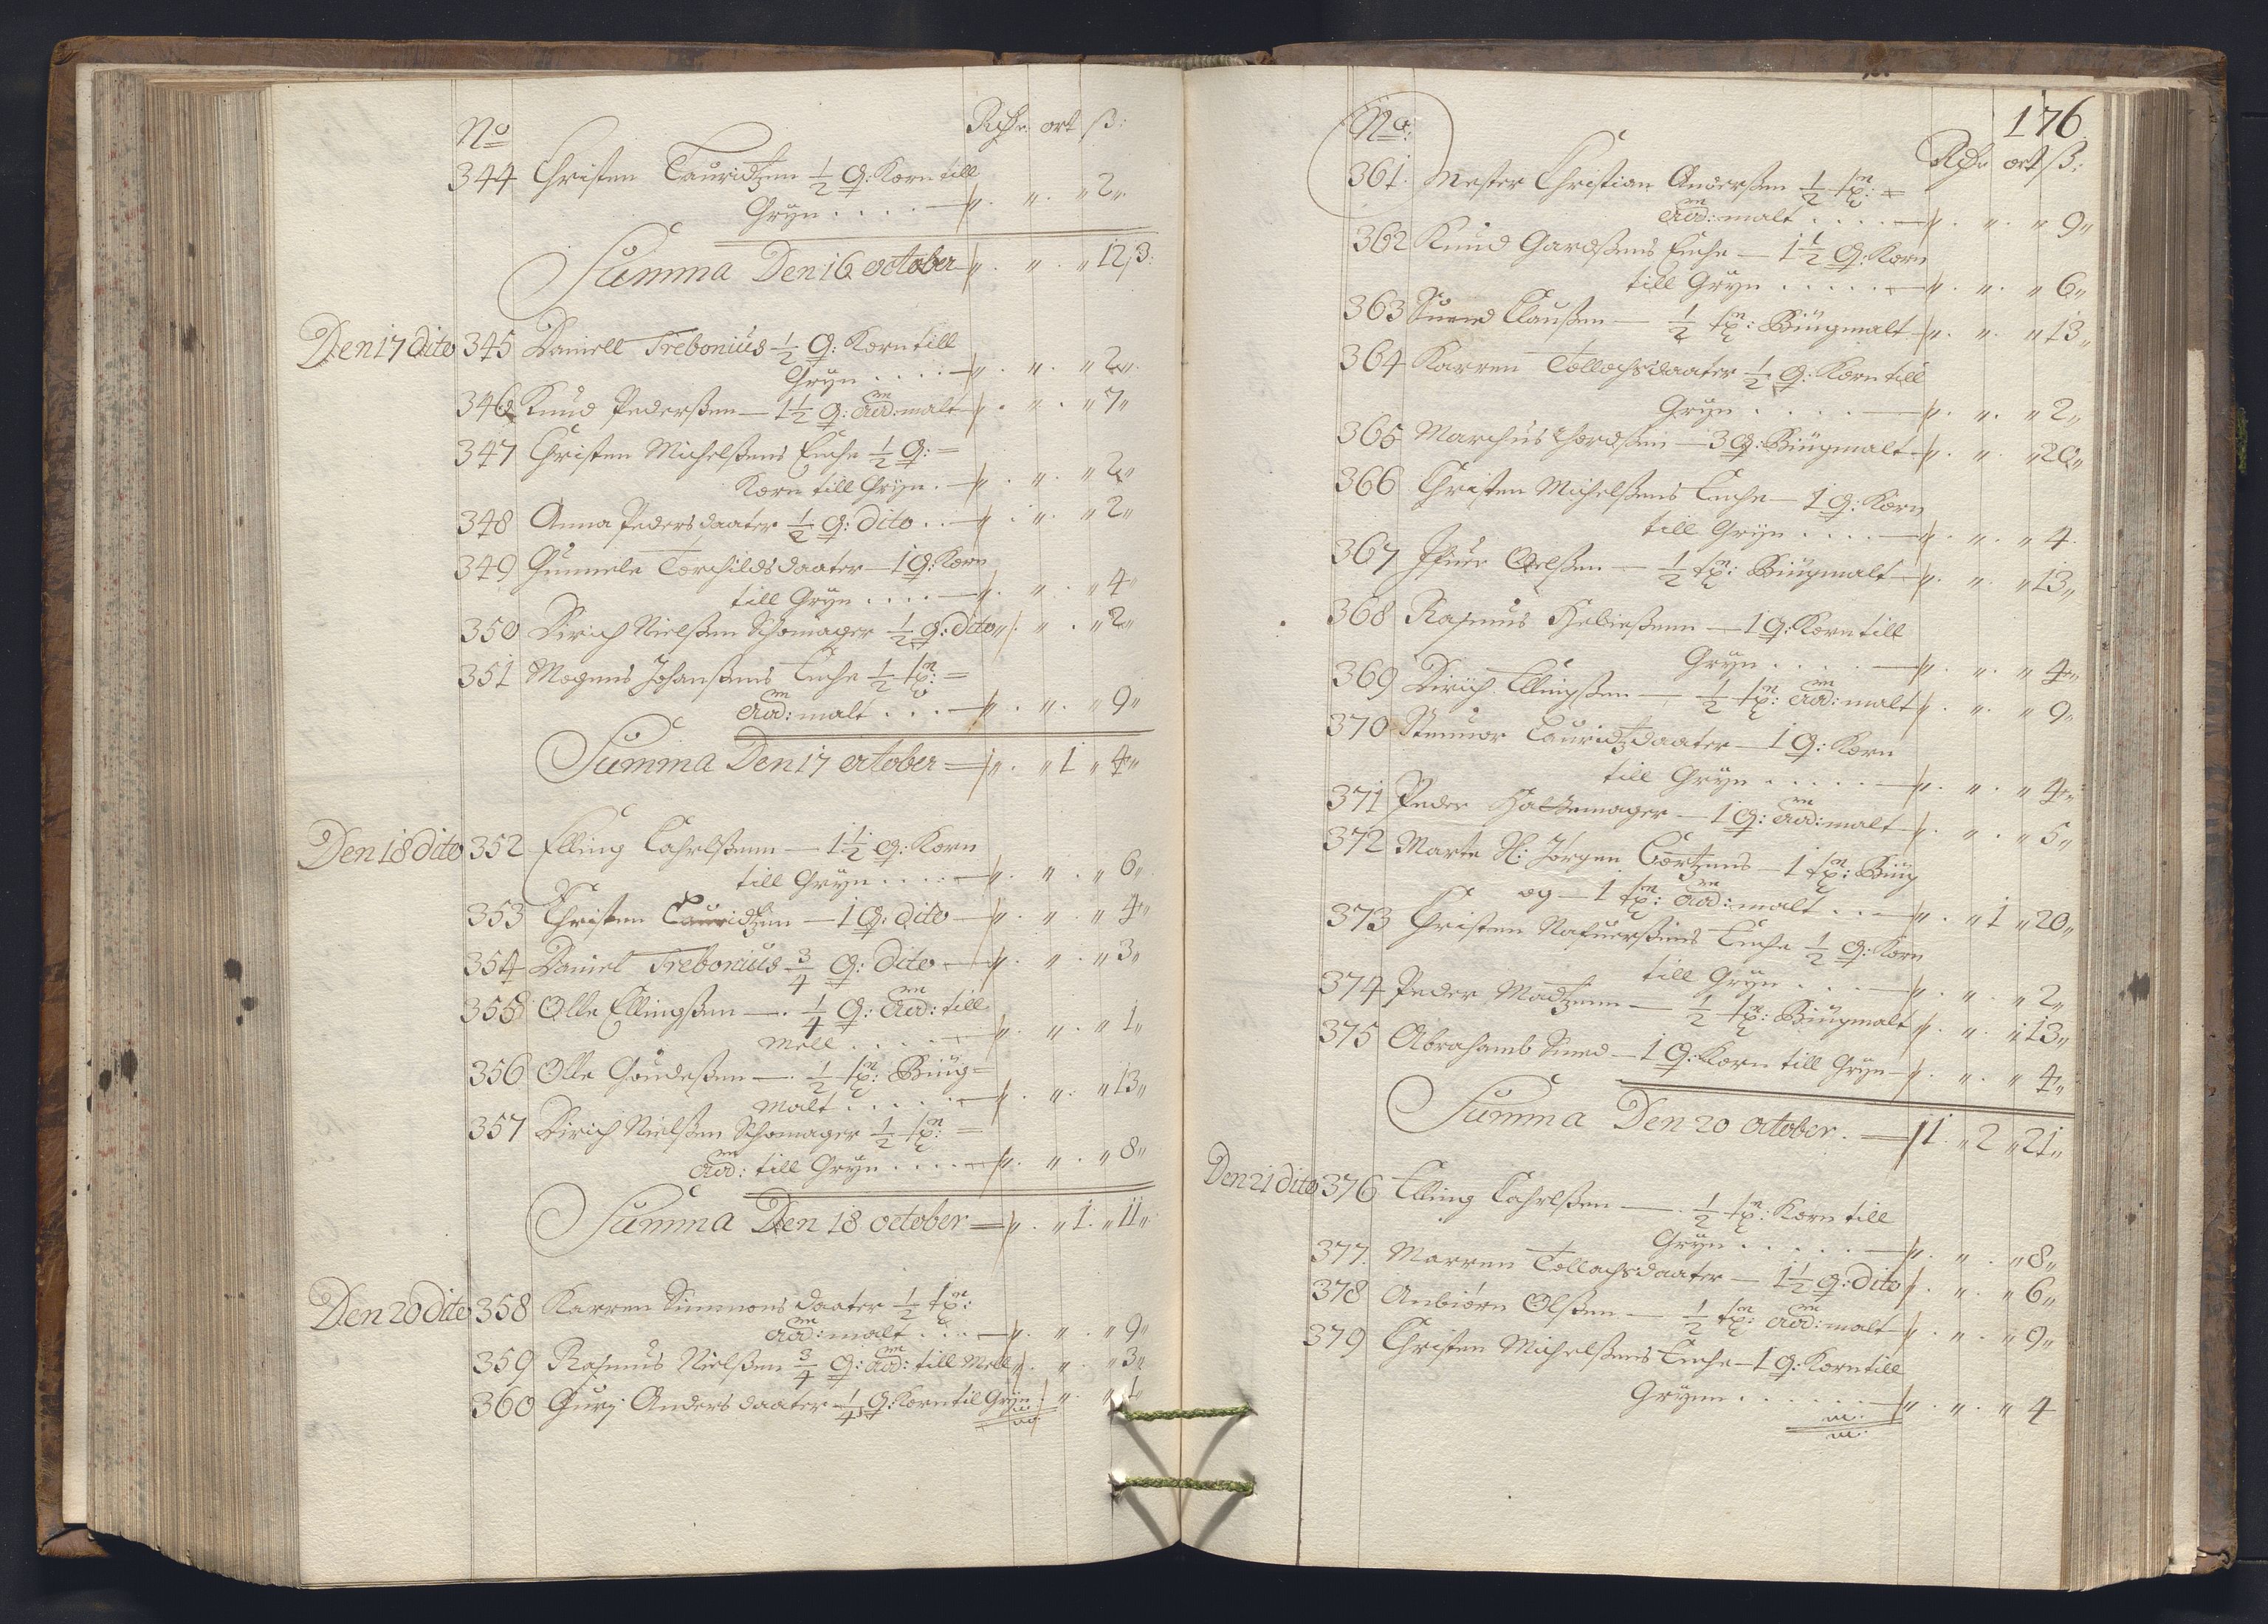 No Rdr. ort ß:
344 Christen Lauridtzen ½ Q: Korn till
Gryn . . . . — " . " . " 2 "
Summa Den 16 october " . " . " 12 ß:
Den 17 dito 345 Daniell Trebonius ½ Q: Korn till
Gryn . . . . — " . " . " 2 "
346 Knud Pederßen — 1½ Q: Aad: malt " . " . " 7 "
347 Christen Michelßens Enche ½ Q: =
Korn till Gryn . — " . " . " 2 "
348 Anna Peders daater ½ Q: dito . . — " . " . " 2 "
349 Gunnele Torchilds daater — 1 Q: Korn
till Gryn . . . . — " . " . " 4 "
350 Dirich Nielßen Schomager ½ Q: dito " . " . " 2 "
351 Mogens Johanßens Enche ½ tp: =
Aad: malt . . . — " . " . " 9 "
Summa Den 17 october = " . " 1 " 4 "
Den 18 dito 352 Elling Carlßenn — 1½ Q: Korn
till Gryn . . . . — " . " . " 6 "
353 Christen Lauridtzen — 1 Q: dito — " . " . " 4 "
354 Daniel Trebonius ¾ Q: dito — " . " . " 3 "
355 Olle Ellingßen — . ¼ Q: Aad: till
Mell . . . . — " . " . " 1 "
356 Olle Goudeßen — . ½ tp: Biug =
Malt . . . . . — " . " . " 13 "
357 Dirich Nielßen Schomager ½ tp: =
Aad: till Gryn . . . . — " . " . " 8 "
Summa Den 18 october = " . " 1 . " 11 "
Den 20 dito 358 Karren Simmons daater ½ tp:
Aad: malt . . . — " . " . " 9 "
359 Rasmus Nielßen ¾ Q: Aad: till Mell " . " . " 3 "
360 Gurj Anders daater ¼ Q: Korn til Gryn " . " . " 1 "
176
No: Rdr. ort ß:
361. Mester Christian Anderßen ½ tp: =
Aad: malt . . . . — " . " . " 9 "
362 Knud Gardßens Enche — 1½ Q: Korn
till Gryn . . . . . — " . " . " 6 "
363 Suend Claußen — ½ tp: Biugmalt " . " . " 13 "
364 Karren Tollachsdaater ½ Q: Korn till
Gryn . . . . — " . " . " 2 "
365 Marchus Thordßen — 3 Q: Biugmalt " . " . " 20 "
366 Christen Michelßens Enche — 1 Q: Korn
till Gryn . . . . — " . " . " 4 .
367 Ifuer Oelßen — ½ tp: Biugmalt — " . " . " 13 "
368 Rasmus Heließenn — 1 Q: Korn till
Gryn . . . . — " . " . " 4 "
369 Dirich Ellingßen — ½ tp: Aad: malt " . " . " 9 "
370 Stennor Lauridtzdaater — 1 Q: Korn
till Gryn . . . . . — " . " . " 4 "
371 Peder Hattemager — 1 Q: Aad: malt " . " . " 5 "
372 Marte Sl: Jørgen Lortzens — 1 tp: Biug
og — 1 tp: Aad: malt . . — " . " 1 " 20 "
373 Christen Rafuerßens Enche ½ Q: Korn
till Gryn . . . — " . " . " 2 "
374 Peder Madtzenn — ½ tp: Biugmalt " . " . " 13 "
375 Abrahamb Smed — 1 Q: Korn till Gryn — " . " . " 4 "
Summa Den 20 october . = 1 . " 2 " 21 "
Den 21 dito 376 Elling Carlßen — . ½ tp: Korn till
Gryn . . . . . — " . " . " 8 "
377. Marren Tollachsdaater — 1½ Q: dito " . " . " 6 "
378 Anbiørn Olßen — ½ tp: Aad: malt — " . " . " 9 "
379 Christen Michelßens Enche — 1 Q: Korn till
Grynn . . . . . . — " . " . " 4